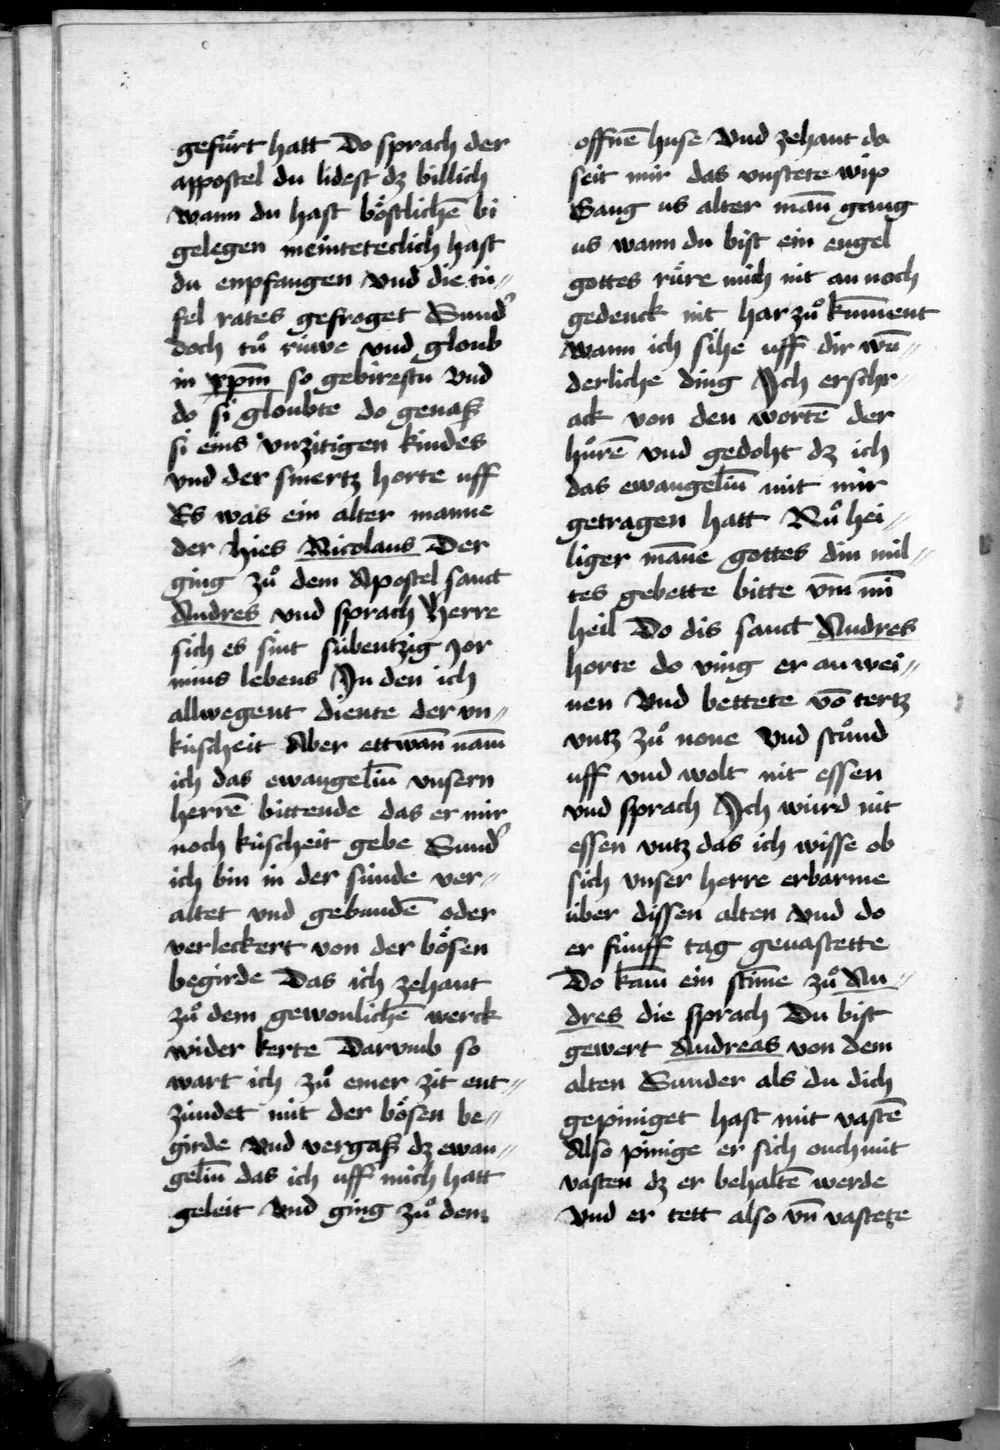 gefürt hatt Do sprach der
appostel du lidest dz billich
wann du hast böstlichē bi
gelegen meinteteclich hast
du enpfangen vnd die tü⸗
fel rates gefroget Sund᾽
doch tuͦ rüwe vnd gloub
in xp̄m so gebirestu vnd
do si gloubte do genaß
si eins vnzitigen kindes
vnd der smertz horte uff
Es was ein alter manne
der hies Nicolaus Der
ging zuͦ dem Apostel sanct
Andres vnd sprach Herre
sich es sint sübentzig Jor
mins lebens In den ich
allwegent diente der vn⸗
küscheit Aber ettwan̄ nam̄
ich das ewangeliū vnsern
herrē bittende das er mir
noch küscheit gebe Sund᾽
ich bin in der sünde ver⸗
altet vnd gebundē oder
verleckert von der bösen
begirde Das ich zehant
zuͦ dem gewonlichē werck
wider kerte Darvmb so
wart ich zuͦ einer zit ent⸗
zündet mit der bösen be⸗
girde vnd vergaß dz ewan⸗
geliū das ich uff mich hatt
geleit vnd ging zuͦ dem
offnē huse vnd zehant do
seit mir das vnstete wip
Gang us alter man̄ gang
us wann du bist ein engel
gottes rüre mich nit an noch
gedenck nit har zuͦ kum̄ent
wann ich sihe uff dir wū⸗
derliche ding Ich erschr⸗
ack von den wortē der
huͦrē vnd gedoht dz ich
das ewangeliū mit mir
getragen hatt Nuͦ hei⸗
liger man̄e gottes din mil⸗
tes gebette bitte vm̄ min̄
heil Do dis sanct Andres
horte do ving er an wei⸗
nen vnd bettete vō tertz
vntz zuͦ none vnd stuͦnd
uff vnd wolt nit essen
vnd sprach Ich würd nit
essen vntz das ich wisse ob
sich vnser herre erbarme
über dissen alten vnd do
er fünff tag gevastette
Do kam̄ ein stim̄e zuͦ An⸗
dres die sprach Du bist
gewert Andreas von dem
alten Sunder als du dich
gepiniget hast mit vastē
Also pinige er sich ouch mit
vasten dz er behaltē werde
vnd er tett also vn̄ vastete